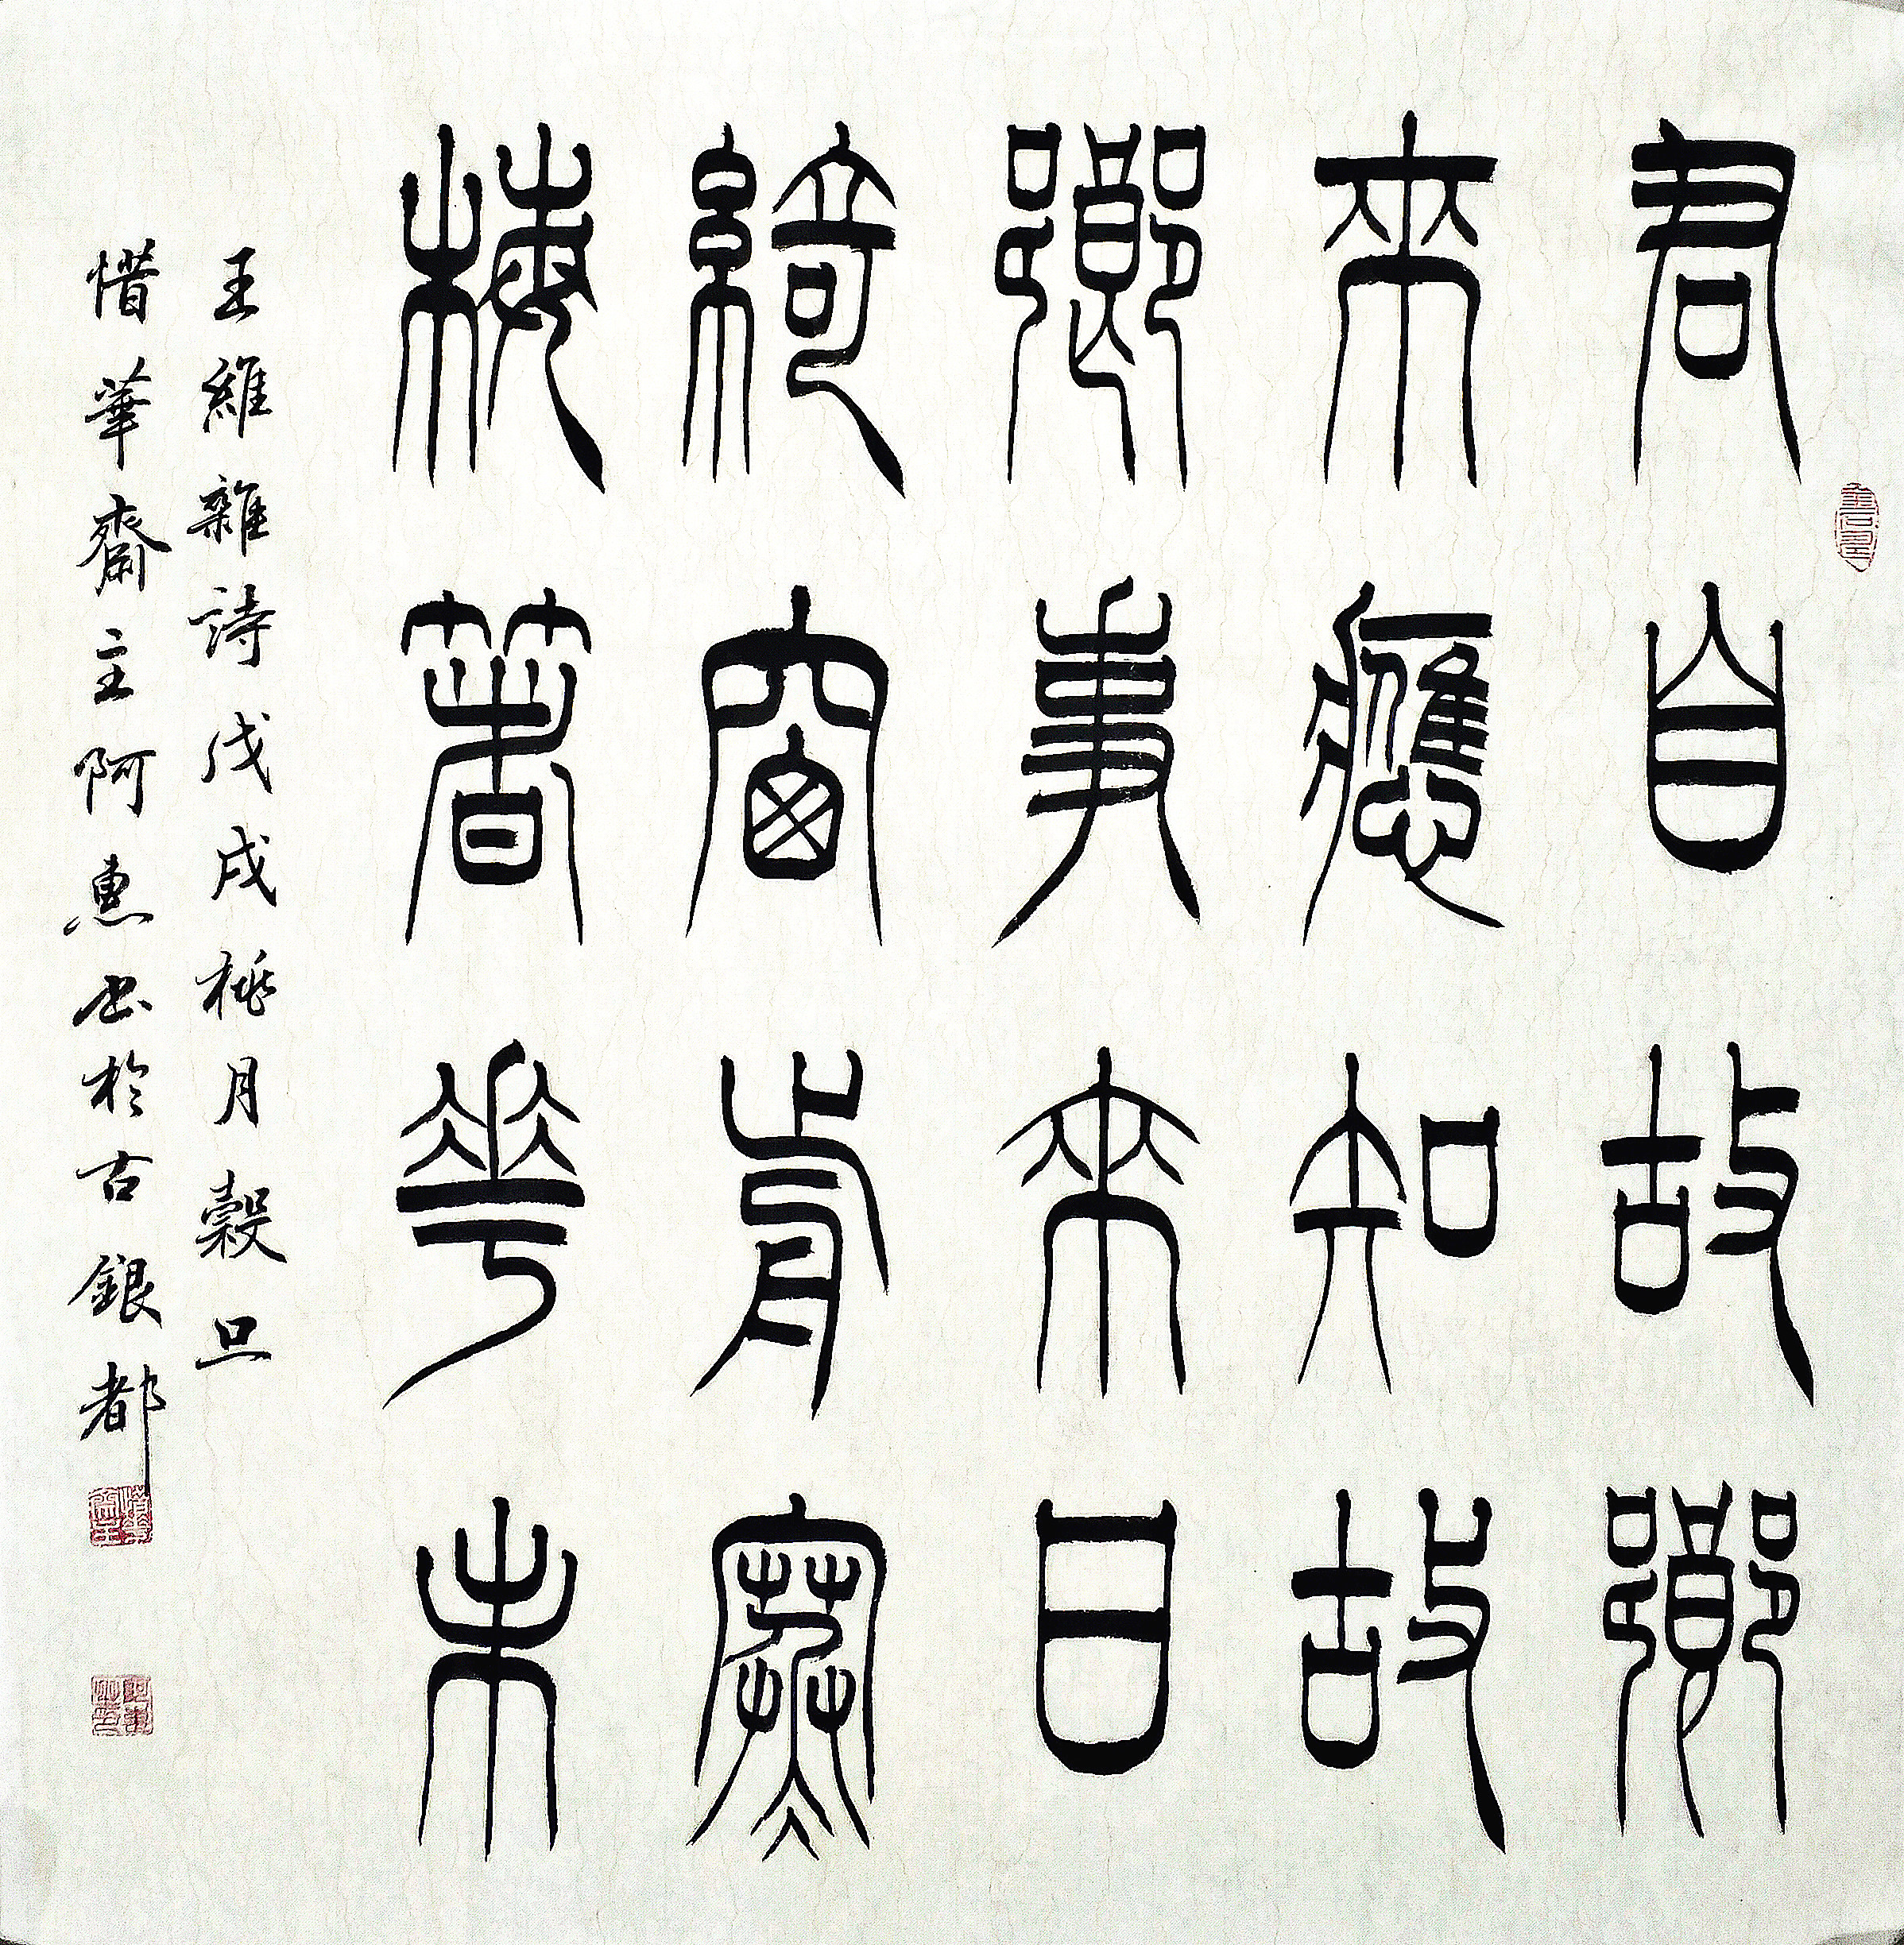 君自故鄉
來應知故
鄉事來日
綺窗前寒
梅著花未
王維雜詩戊戌桃月穀旦
惜華齋主阿惠书於古銀都